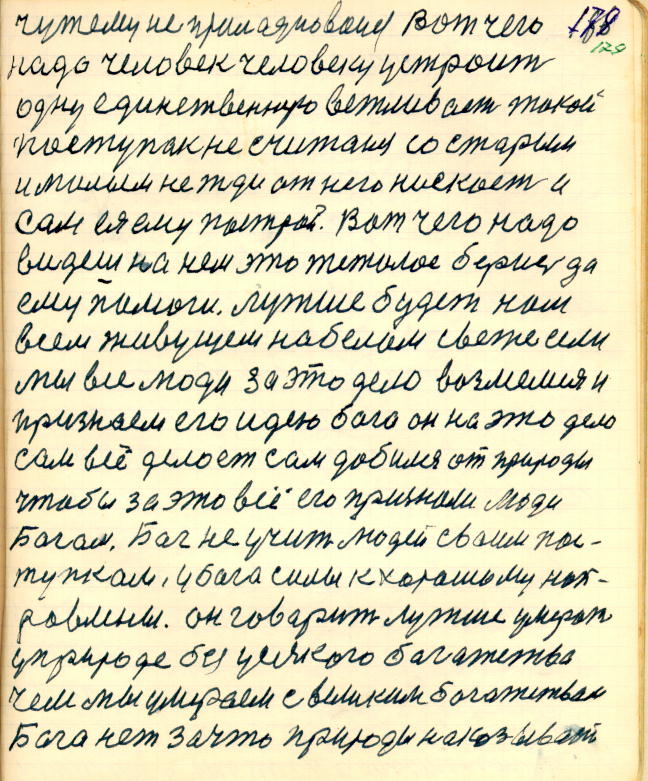 чужему не приладнована Вот чего 178
179
надо человек человеку устроит
одну единственную ветливаст такой
поступак не считаца со старым
и милым не жди от него нискаст и
сам ея ему пострай. Вот чего надо
видеш на нем это тежолае бериш да
ему помоги. лутше будет нам
всем живущем на белам свете если
мы все люди за это дело возмемся и
признаем его идею бога он на это дело
сам всё делает сам добился от природы
чтобы за это всё его признали люди
Богам. Бог не учит людей сваим пос-
тупкам, у бога силы к харашому нап-
равлены. он говарит лутше умерать
у природе без усякого багажетва
чем мы умираем с великим богажетвам
Бога нет за что природы наказывать